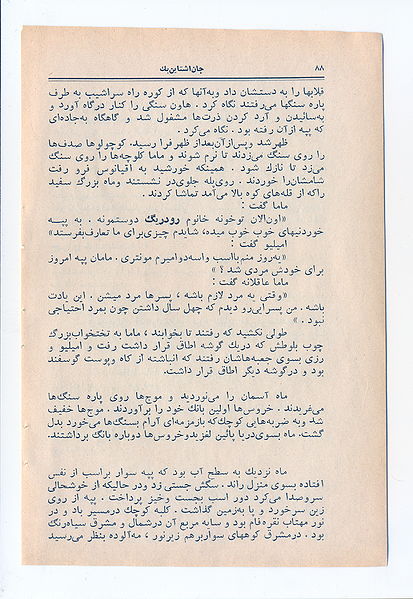 ۸۸ جان‌اشتاین‌بك
قلابها را به دستشان داد وبه‌آنها که از کوره راه سراشیب به طرف
پاره سنگها می‌رفتند نگاه کرد . هاون سنگی را کنار درگاه آورد و
به‌سائیدن و آرد کردن ذرت‌ها مشغول شد و گاهگاه به‌جاده‌ای
که پپه ازآن رفته بود . نگاه می‌کرد .
ظهرشد وپس‌ازآن‌بعدازظهر فرا رسید. کوچولوها صدف‌ها
را روی سنگ می‌زدند تا نرم شوند و ماما کلوچه‌ها را روی سنگ
می‌زد تا نازك شود . همینکه خورشید به اقیانوس فرو رفت
شامشان‌را خوردند . روی‌پله جلوی‌در نشستند وماه بزرگ سفید
راکه از قله‌های کوه بالا می‌آمد تماشا کردند .
ماما گفت :
«اون‌الان توخونه خانوم رودریگ دوستمونه . به پپه
خوردنیهای خوب خوب میده، شایدم چیزی‌برای ما تعارف‌بفرسته»
امیلیو گفت :
«یه‌روز منم‌بااسب واسه‌دوامیرم مونتری . مامان پپه امروز
برای خودش مردی شد ؟ »
ماما عاقلانه گفت :
«وقتی به مرد لازم باشه ، پسرها مرد میشن . این یادت
باشه . من پسرایی‌رو دیدم که چهل سال داشتن چون بمرد احتیاجی
نبود . »
طولی نکشید که رفتند تا بخوابند ، ماما به تختخواب‌بزرگ
چوب بلوطش که دریك گوشه اطاق قرار داشت رفت و امیلیو و
رزی بسوی جعبه‌هاشان رفتند که انباشته از کاه وپوست گوسفند
بود و درگوشه دیگر اطاق قرار داشت.
ماه آسمان را می‌نوردید و موجها روی پاره سنگ‌ها
می‌غریدند . خروس‌ها اولین بانك خود را برآوردند . موج‌ها خفیف
شد وبه ضربه‌هایی کوچك‌که بازمزمه‌ای آرام بسنگ‌ها می‌خورد بدل
گشت. ماه بسوی‌دریا پائین لغزیدوخروس‌ها دوباره بانگ برداشتند.
ماه نزدیك به سطح آب بود که پپه سوار براسب از نفس
افتاده بسوی منزل راند . سگش جستی زد ودر حالیکه از خوشحالی
سروصدا می‌کرد دور اسب بجست وخیز پرداخت . پپه از روی
زین سرخورد و پا به‌زمین گذاشت . کلبه کوچك درمسیر باد و در
نور مهتاب نقره‌فام بود و سایه مربع آن درشمال و مشرق سیاه‌رنگ
بود . درمشرق کوههای سواربرهم زیرنور ، مه‌آلوده بنظر می‌رسید